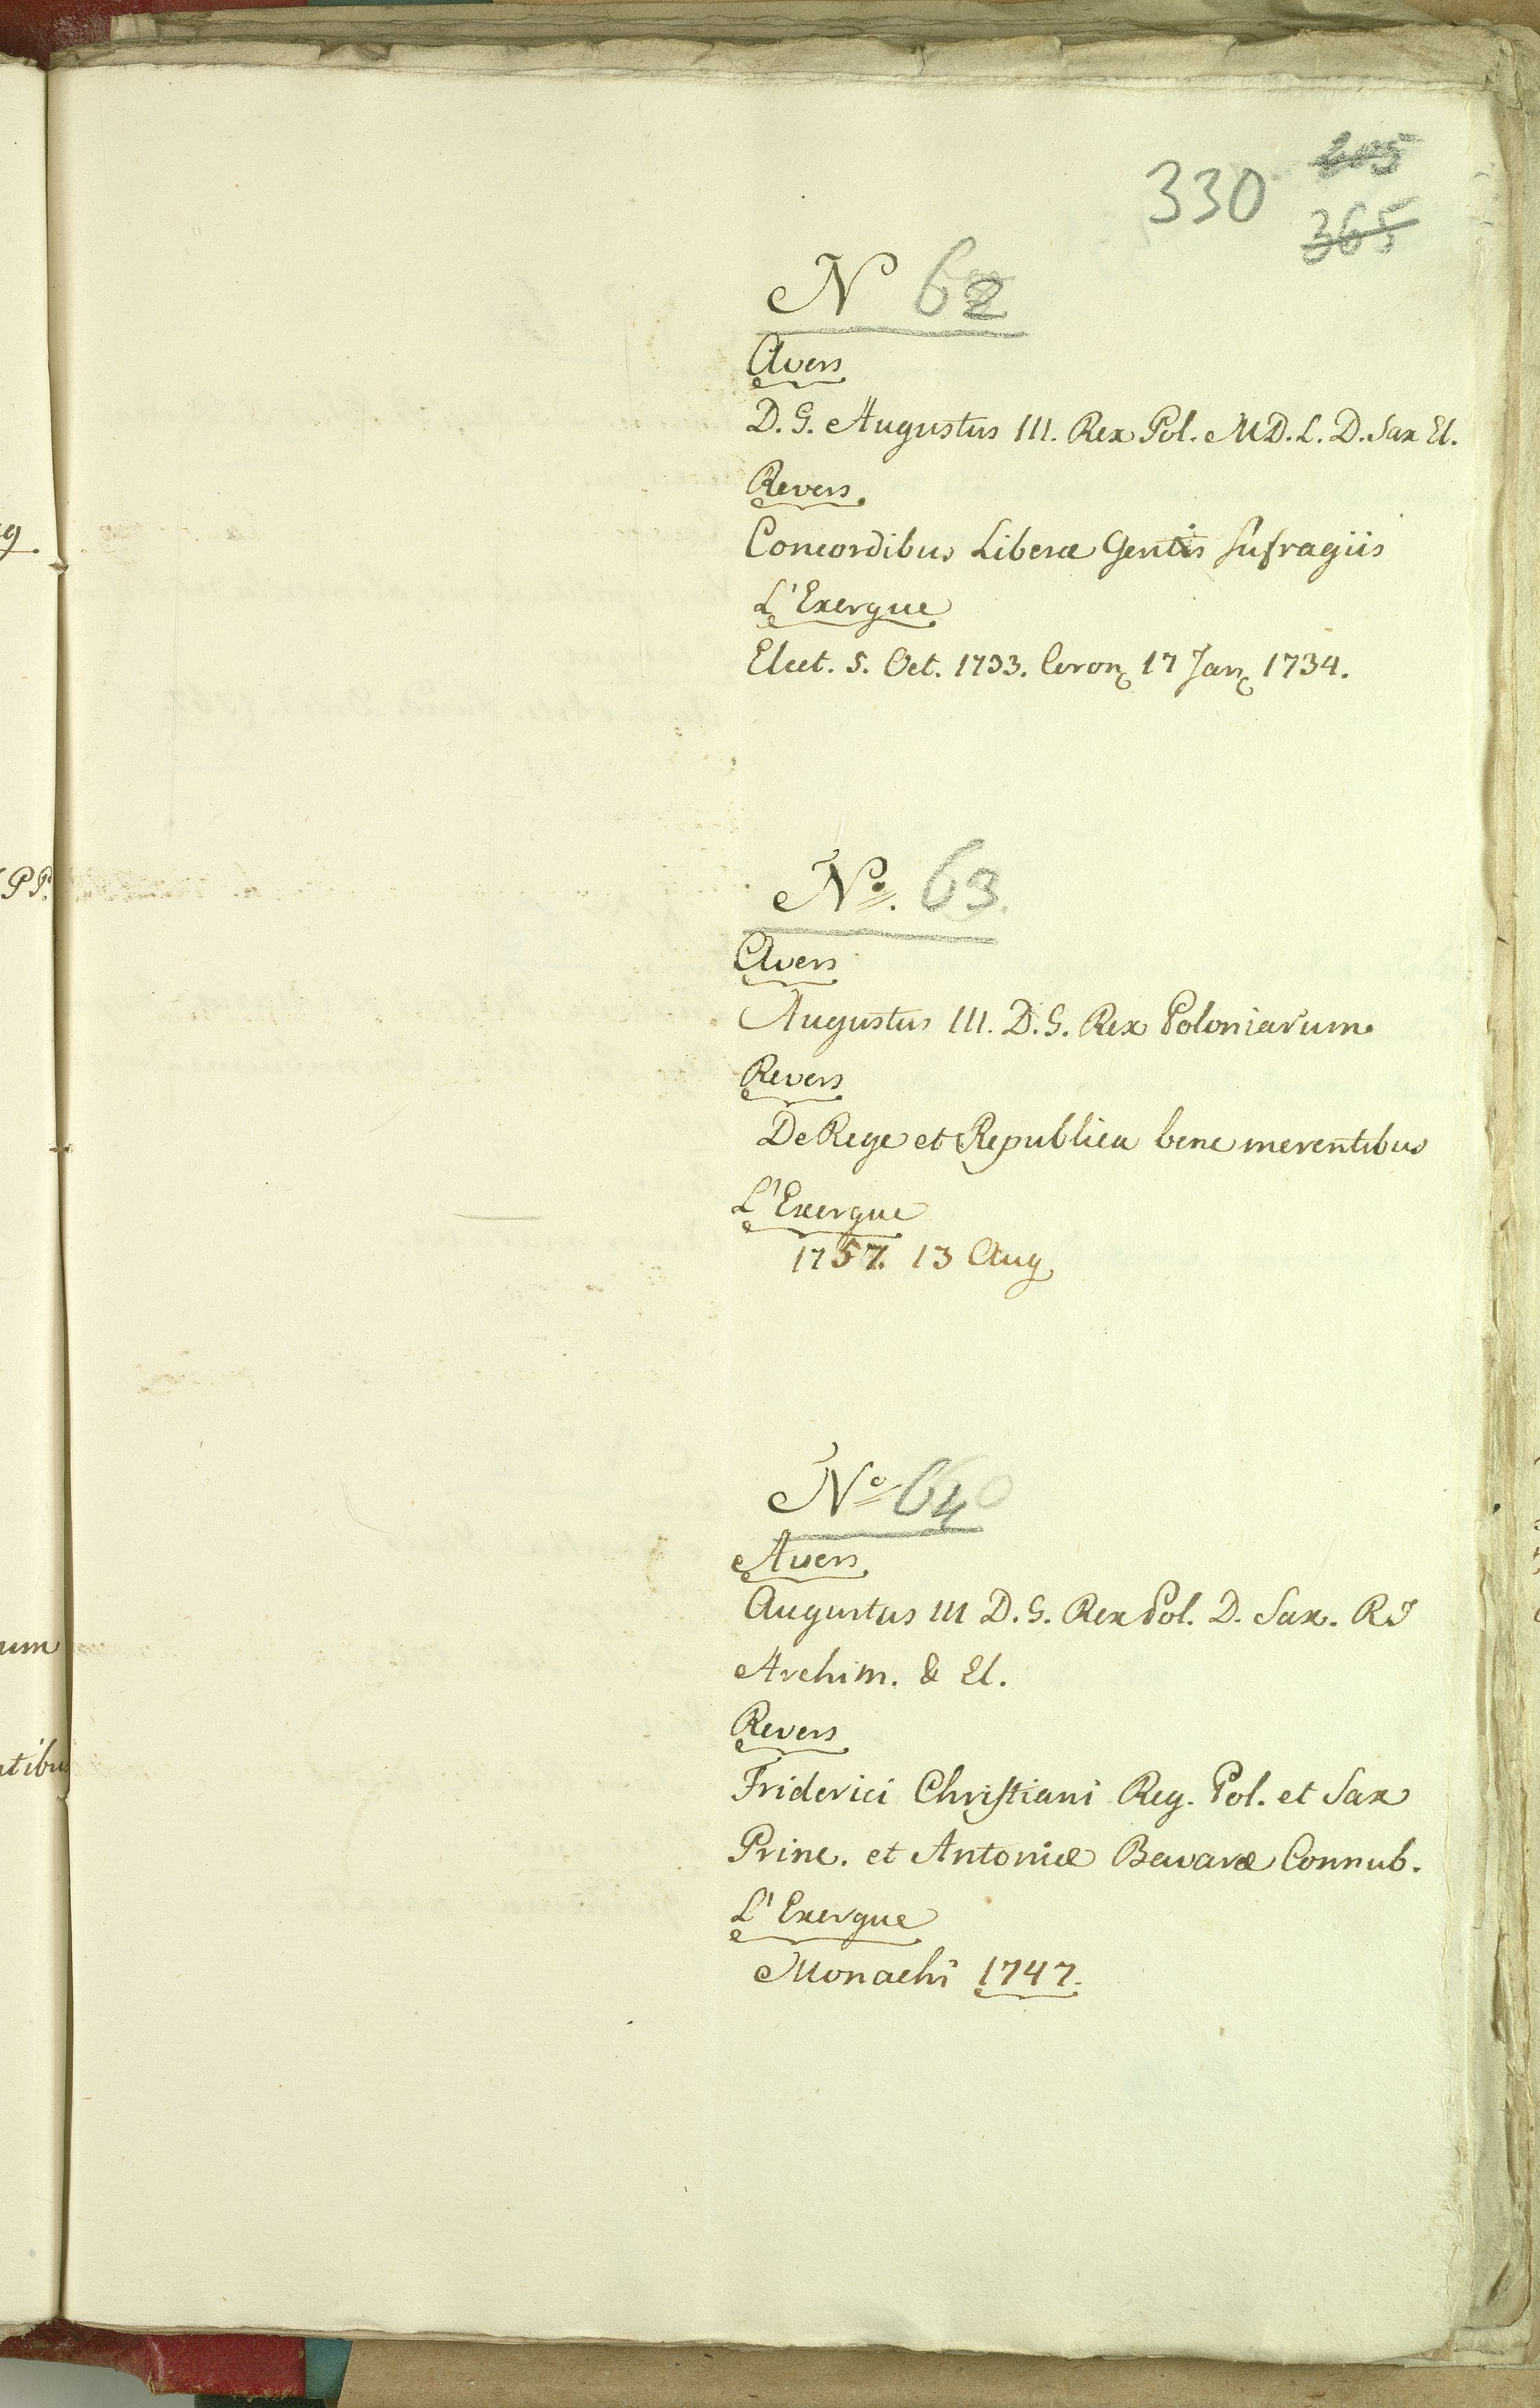 330
365
N 62
Avers
D. G. Augustus III. Rex Pol. M D. L. D. Sax El.
Revers.
Concordibus Liberæ Gentis Sufragiis
L'Exergue
Elect. 5. Oct. 1733. Coron. 17 Jan. 1734.
No. 63.
Avers
Augustus III. D. G. Rex Poloniarum.
Revers
De Rege et Republica bene merentibus
L'Exergue
1757. 13 Aug.
No 64
Avers.
Augustus III D. G. Rex Pol. D. Sax. R I
Archim. & El.
Revers
Friderici Christiani Reg. Pol. et Sax
Princ. et Antoniæ Bavaræ Connub.
L'Exergue
Monachi 1747.